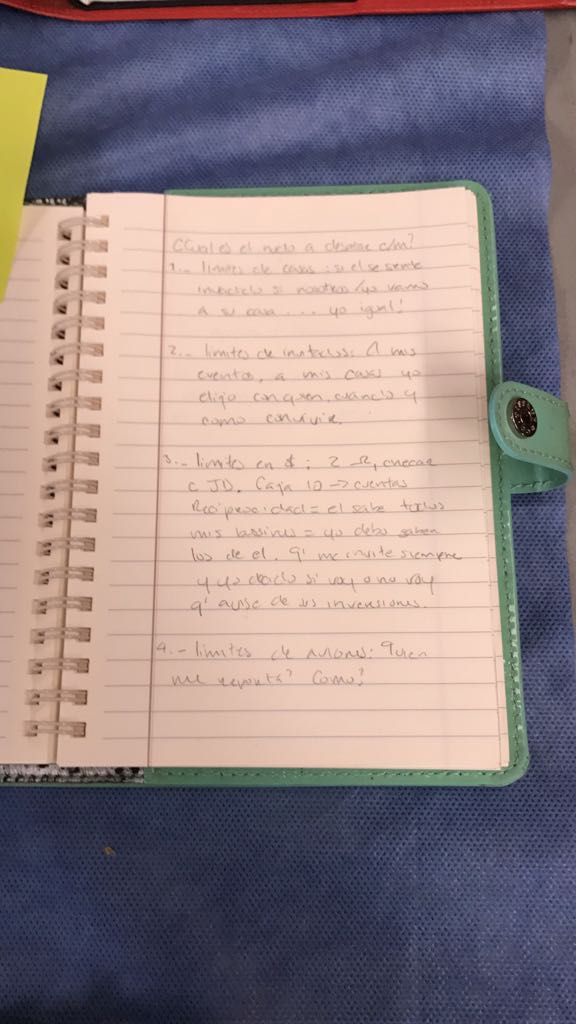 ¿Cual es el nudo a desatar c/m?
1.- limites de casas: si el se siente
invadido si nosotros/yo vamos
a su casa ... yo igual!
2.- limites de invitados: A mis
eventos, a mis casas yo
elijo con quien, cuando y
como convivir.
3.- limites en $: 2 checar
c JD. Caja 10 → cuentas
Reciprocidad = el sabe todos
mis = yo debo saber
los de el. q' me invite siempre
y yo decido si voy o no voy
q' avise de sus inversiones.
4.- limites de aviones: Quien
me reporta? Como?